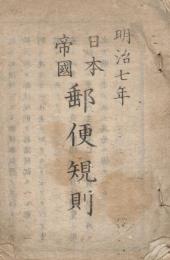 明治七年
日本
帝國
郵便規則